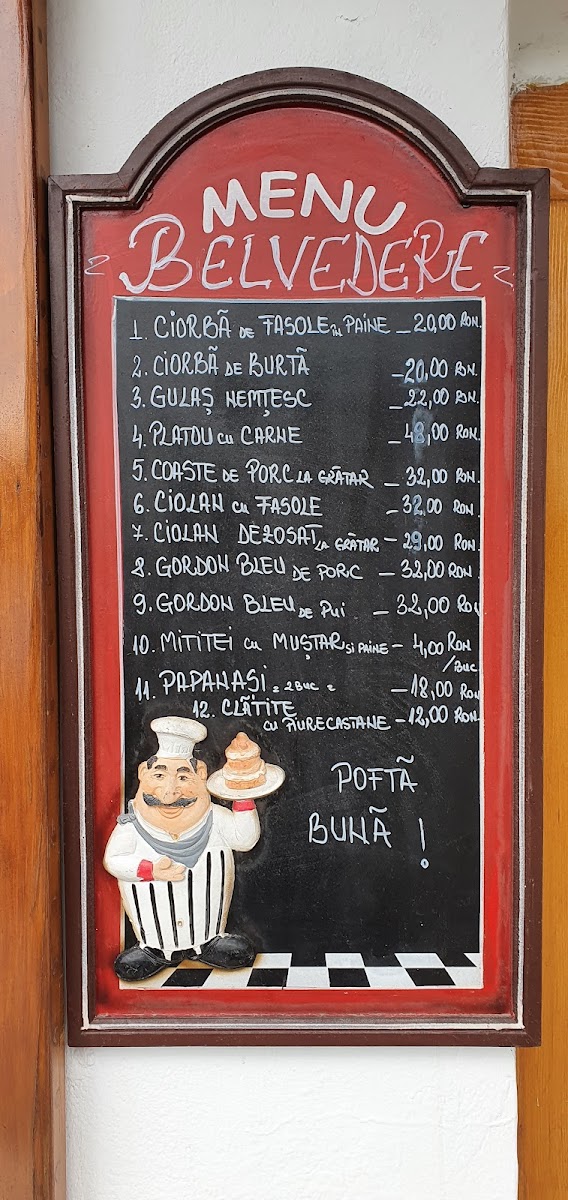 MENU
BELVEDERE
1. CIORBĂ DE FASOLE în PAINE – 20,00 RON.
2. CIORBĂ DE BURTĂ – 20,00 RON.
3. GULAȘ NEMȚESC – 22,00 RON.
4. PLATOU cu CARNE – 48,00 RON.
5. COASTE DE PORC LA GRĂTAR – 32,00 RON.
6. CIOLAN cu FASOLE – 32,00 RON.
7. CIOLAN DEZOSAT LA GRĂTAR – 29,00 RON.
8. GORDON BLEU DE PORC – 32,00 RON.
9. GORDON BLEU DE PUI – 32,00 RON
10. MITITEI cu MUȘTAR SI PAINE – 4,00 RON/BUC
11. PAPANASI = 2 BUC = – 18,00 RON
12. CLĂTITE CU PIURE CASTANE – 12,00 RON
POFTĂ
BUNĂ !